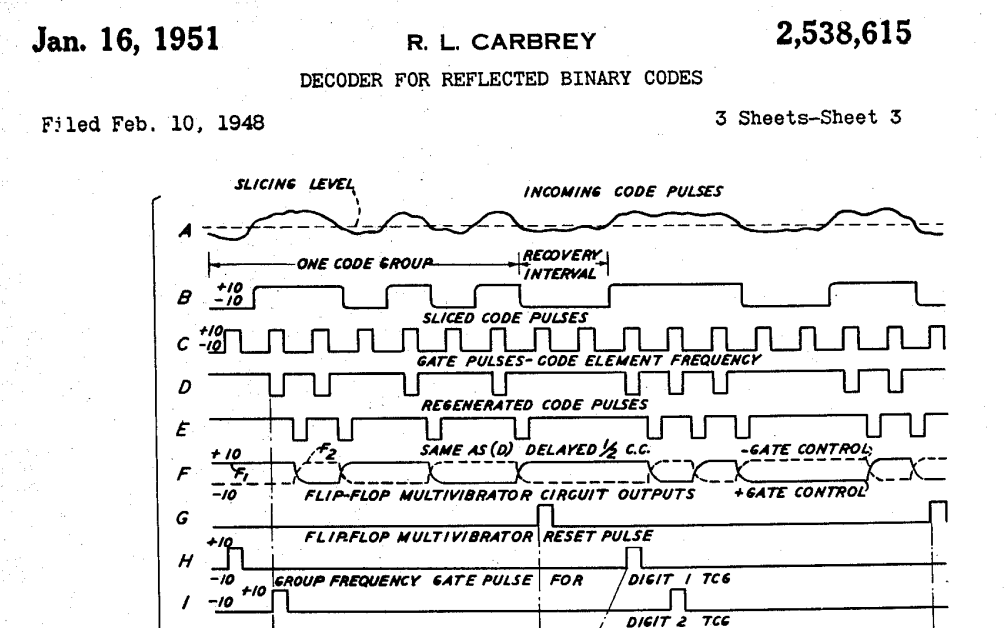 Jan. 16, 1951
R. L. CARBREY
2,538,615
DECODER FOR REFLECTED BINARY CODES
Filed Feb. 10, 1948
3 Sheets-Sheet 3
SLICING LEVEL
INCOMING CODE PULSES
A
ONE CODE GROUP
RECOVERY
INTERVAL
B +10
-10
SLICED CODE PULSES
C +10
-10
GATE PULSES-CODE ELEMENT FREQUENCY
D
REGENERATED CODE PULSES
E
SAME AS (D) DELAYED 1/2 C.C.
-GATE CONTROL
F +10
F1
F2
-10
FLIP-FLOP MULTIVIBRATOR CIRCUIT OUTPUTS
+GATE CONTROL
G
FLIP-FLOP MULTIVIBRATOR RESET PULSE
H +10
-10
GROUP FREQUENCY GATE PULSE FOR DIGIT 1 TCG
I +10
-10
DIGIT 2 TCG